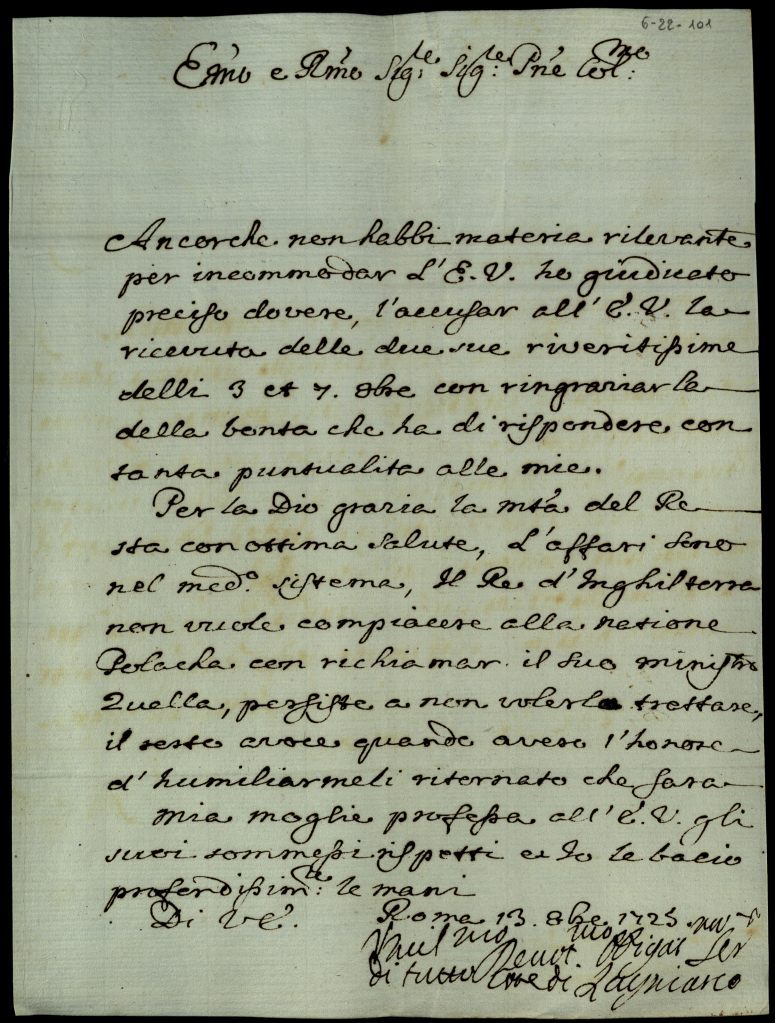 6-22-101
Em̃o e Rm̃o Sig:re Sig:re Pñe Col:mo
Ancorche non habbi materia rilevante
per incommodar L'E.V. ho giudicato
preciso dovere, l'accusar all' E.V. la
ricevuta delle due sue riveritissime
delli 3 et 7. 8bre con ringraziarla
della bonta che ha di rispondere con
tanta puntualita alle mie.
Per la Dio grazia la mtà del Re
sta con ottima salute, L'affari sono
nel med.o sistema, Il Re d'Inghilterra
non vuole compiacere alla natione
Polacha con richiamar il suo ministro
Quella, persiste a non volerlo trattare,
il resto avoce quando avero l'honore
d' humiliarmeli ritornato che sara
mia moglie professa all' E.V. gli
suoi sommessi rispetti et Io le bacio
profondissim:te le mani
Di V.E. Roma 13. 8bre 1725.
Devot. Obigat Ser
di tutto Core di Lagniasco